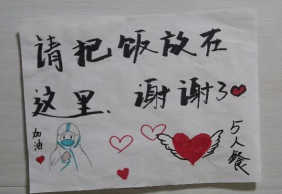 请把饭放在
这里.谢谢了
加油
5人餐